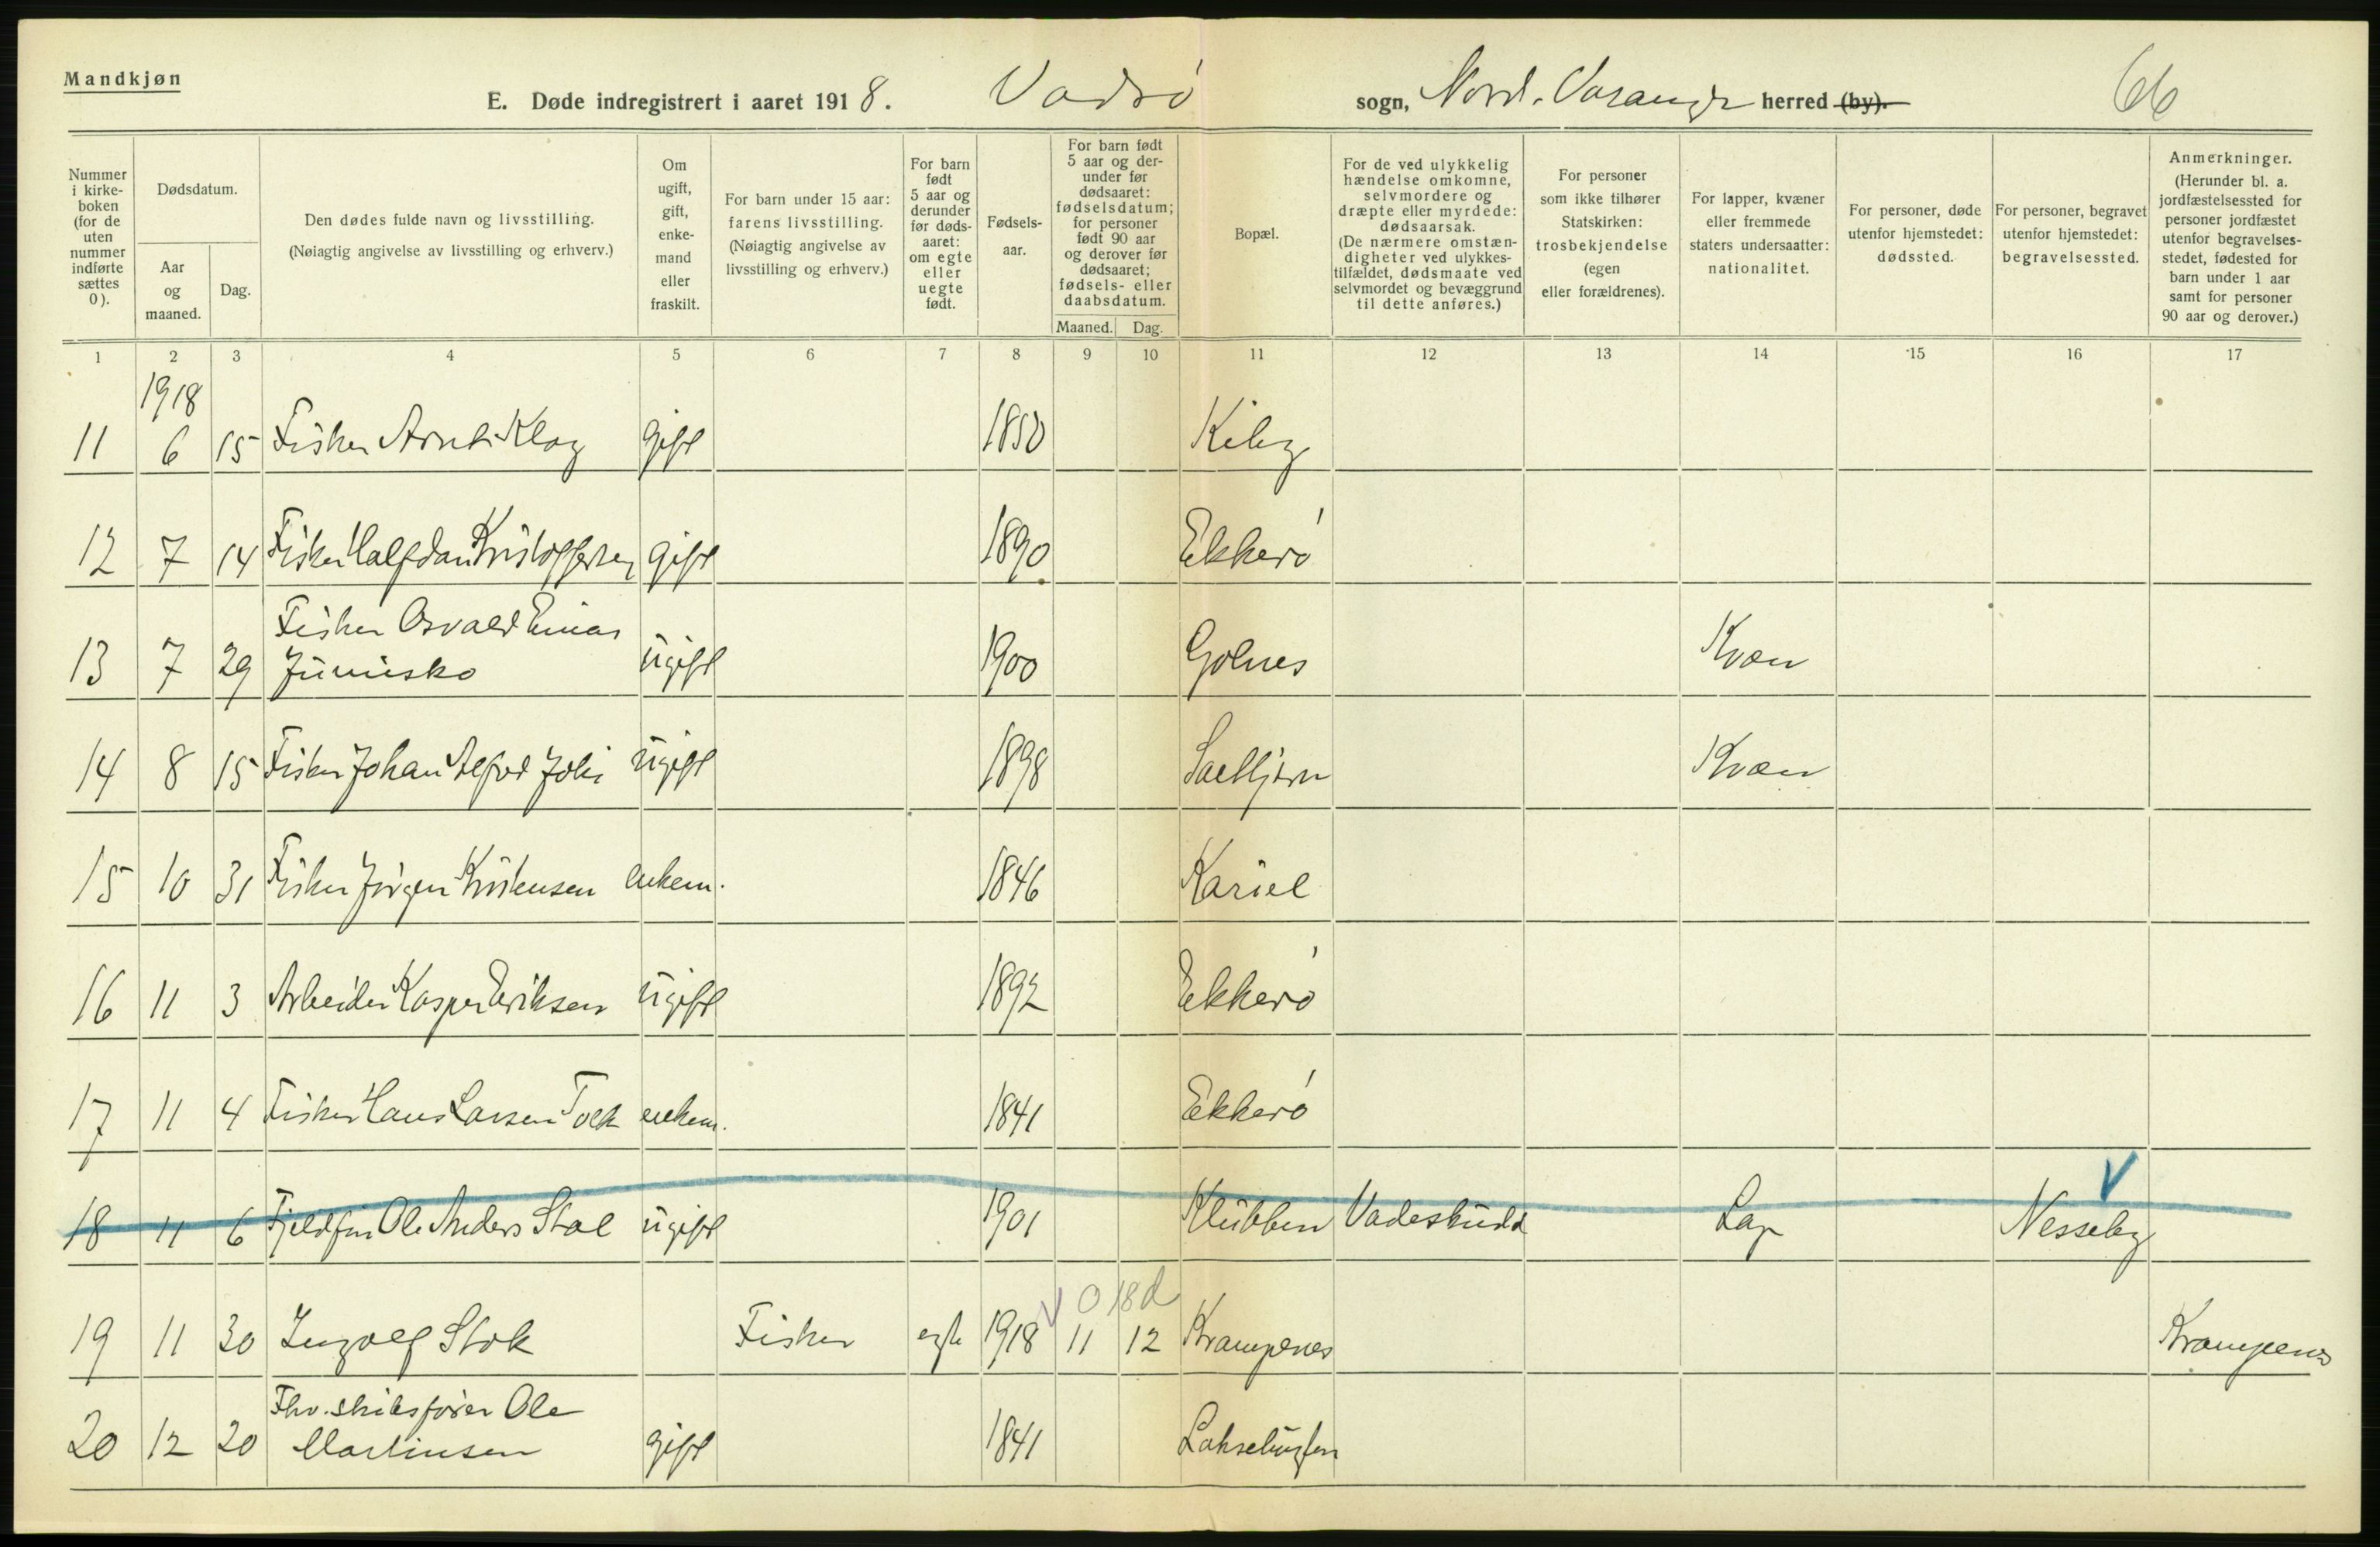 Mandkjøn
E. Døde indregistrert i aaret 1918. Vadsö sogn, Nord-Varanger herred (by). 66
Nummer i kirke-boken (for de uten nummer indførte sættes 0).
Dødsdatum.
Aar og maaned.
Dag.
Den dødes fulde navn og livsstilling.
(Nøiagtig angivelse av livsstilling og erhverv.)
Om ugift, gift, enke-mand eller fraskilt.
For barn under 15 aar: farens livsstilling.
(Nøiagtig angivelse av livsstilling og erhverv.)
For barn født 5 aar og derunder før døds-aaret: om egte eller uegte født.
Fødsels-aar.
For barn født 5 aar og der-under før dødsaaret: fødselsdatum; for personer født 90 aar og derover før dødsaaret; fødsels- eller daabsdatum.
Maaned. Dag.
Bopæl.
For de ved ulykkelig hændelse omkomne, selvmordere og dræpte eller myrdede: dødsaarsak.
(De nærmere omstæn-digheter ved ulykkes-tilfældet, dødsmaate ved selvmordet og bevæggrund til dette anføres.)
For personer som ikke tilhører Statskirken: trosbekjendelse (egen eller forældrenes).
For lapper, kvæner eller fremmede staters undersaatter: nationalitet.
For personer, døde utenfor hjemstedet: dødssted.
For personer, begravet utenfor hjemstedet: begravelsessted.
Anmerkninger.
(Herunder bl. a. jordfæstelsessted for personer jordfæstet utenfor begravelses-stedet, fødested for barn under 1 aar samt for personer 90 aar og derover.)
1 2 3 4 5 6 7 8 9 10 11 12 13 14 15 16 17
1918
11 6 15 Fisker Arnt Klog gift 1850 Kiby
12 7 14 Fisker Halfdan Kristoffersen gift 1890 Ekkerö
Fisker Osvald Einar
13 7 29 Junisko ugift 1900 Golnes Kvæn
14 8 15 Fisker Johan Alfred Joki ugift 1898 Kvæn
15 10 31 Fisker Jörgen Kristensen enkem. 1846 Kariel
16 11 3 Arbeider Kasper Eriksen ugift 1892 Ekkerö
17 11 4 Fisker Hans Larsen enkem. 1841 Ekkerö
18 11 6 Fjeldfin Ole Anders ugift 1901 Klubben Vadeskudd Lap Nesseby
0 18 d
19 11 30 Ingolf Stok Fisker egte 1918 11 12 Krampenes Krampenes
Fhv. skibsförer Ole
20 12 20 Martinsen gift 1841